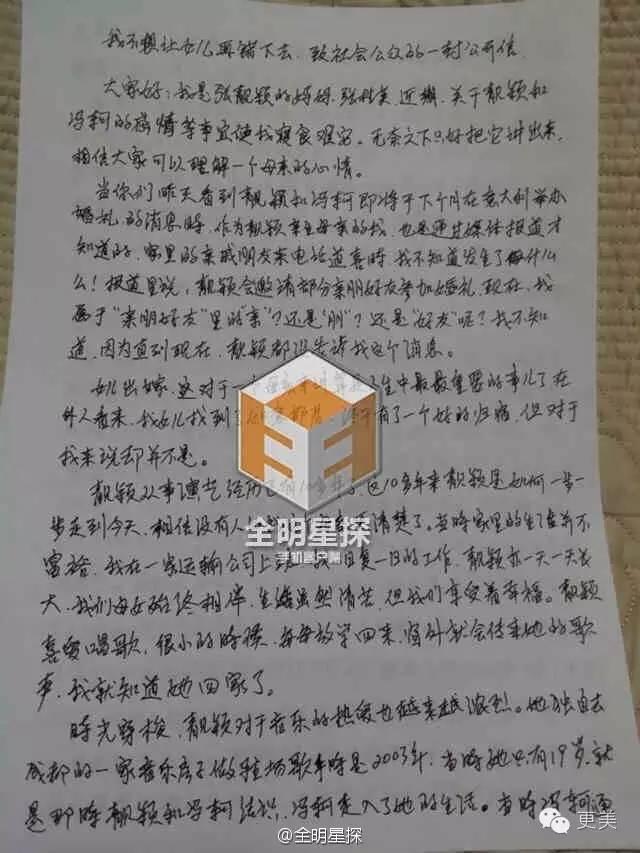 我不想让女儿再错下去,致社会公众的一封公开信
大家好:我是张靓颖的妈妈,张桂英,近期,关于靓颖和
冯轲的婚情等事宜使我寝食难安。无奈之下只好把它讲出来,
相信大家可以理解一个母亲的心情。
当你们昨天看到靓颖和冯轲即将于下个月在意大利举办
婚礼的消息时,作为靓颖亲生母亲的我,也是通过媒体报道才
知道的,家里的亲戚朋友来电话道喜时,我不知道发生了什么
么!报道里说,靓颖会邀请部分亲朋好友参加婚礼,现在,我
属于“亲朋好友”里的“亲”?还是“朋”?还是“好友”呢?我不知
道,因为直到现在,靓颖都没告诉我这个消息。
女儿出嫁,这对于一个母亲来说
生中最最重要的事儿了在
外人看来,我女儿找到了
终于有了一个好的归宿,但对于
我来说却并不是。
靓颖从事演艺经历已有10多年了,这10多年来靓颖是如何一步一
步走到今天,相信没有人
清楚了。当时家里的生活并不
富裕,我在一家运输公司上
日复一日的工作,靓颖亦一天一天长
大,我们母女始终相伴,生活虽然清苦,但我们享受着幸福。靓颖
喜爱唱歌,很小的时候,每每放学回来,窗外就会传来她的歌
声,我就知道她回家了。
时光穿梭,靓颖对于音乐的热爱也越来越浓烈。她独自去
成都的一家音乐房子做驻场歌手时是2003年,当时她只有19岁,就
是那时靓颖和冯轲结识,冯轲走入了她的生活。当时冯轲通
全明星探
手机客户端
@全明星探
更美